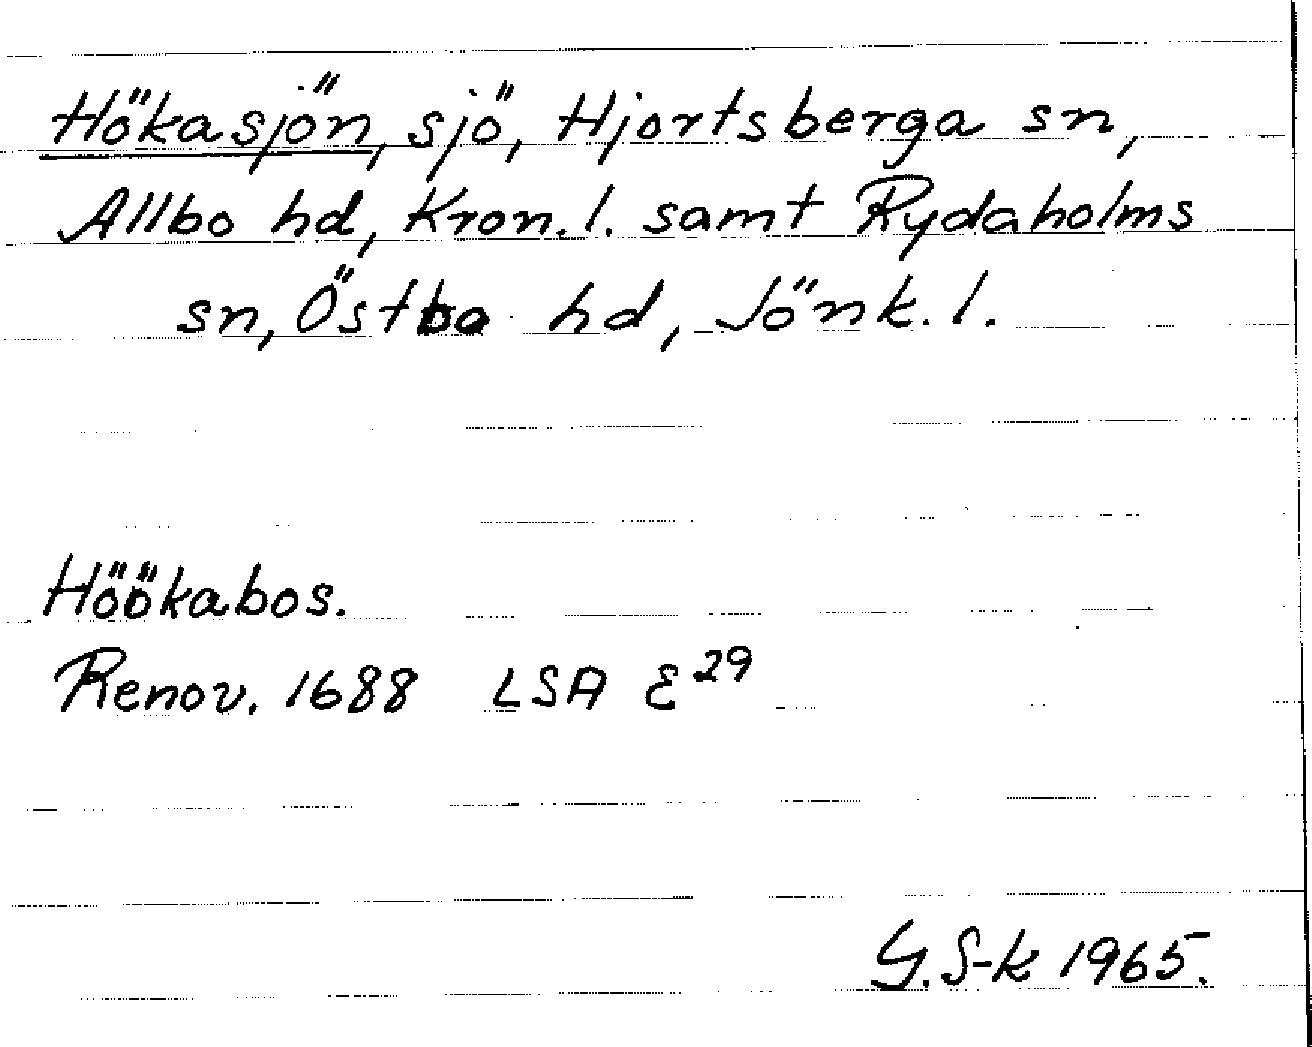 Hökasjön, sjö, Hjortsberga sn,
Allbo hd, Kron. l. samt Rydaholms
sn, Östbo hd, Jönk. l.
Höökabos.
Renov. 1688 LSA E²⁹
G. S-k 1965.